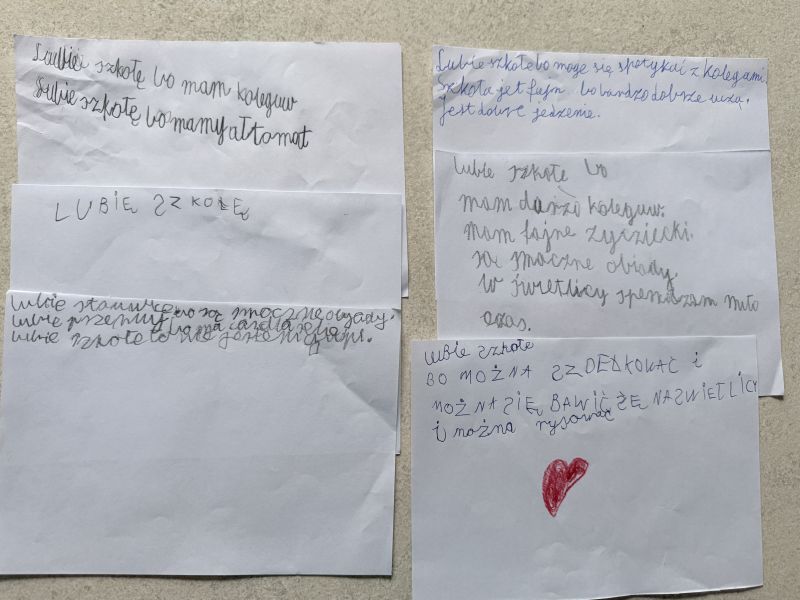 Lubiei szkołę bo mam koleguw
Lubie szkołę bo mamy ałtomat
LUBIĘ SZKOŁĘ
lubie bo są smocznie obyady.
lubie
lubie szkołę bo nie jest
Lubie szkołe bo moge się spotykać z kolegami.
Szkoła jet fajn bo bardzo dobrze uczą.
Jest dobre jedzenie.
lubie szkołe bo
mam dużo koleguw.
mam fajne zycziecki.
są smaczne obiady.
w świetlicy spendzam miło
czas.
lubie szkołe
BO MOŻNA i
MOŻNA SIĘ BAWIĆ ŻĘ NA SWIETLICY
i można rysować